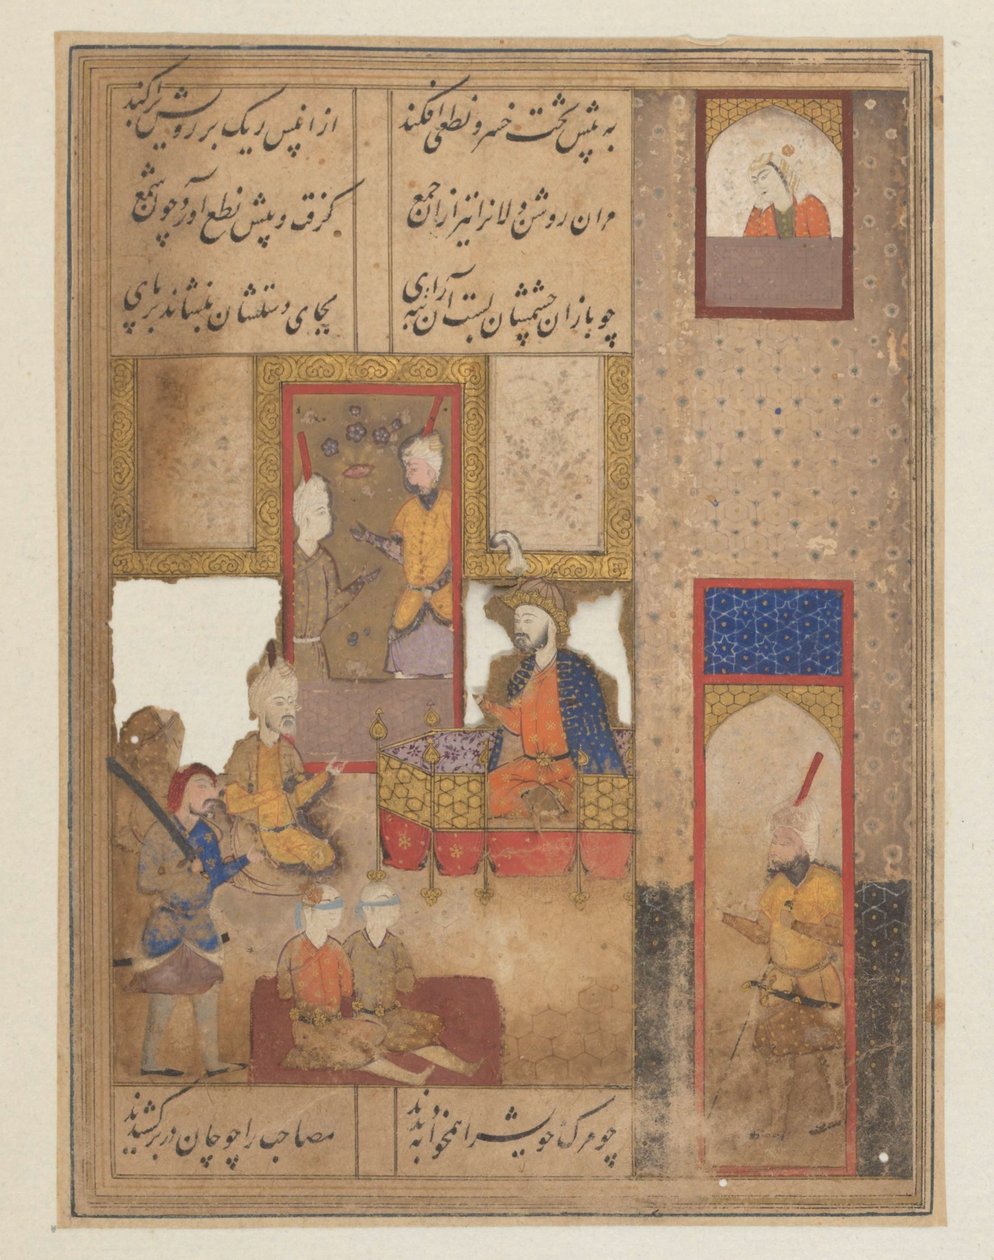 به پیش تخت خسرو نطعی افکند از انپس ریک بر رویش پراکند
مران روشن دلانرا نیز ازان جمع کرفت و پیش نطع آورد چون شمع
چو بازان چشمشان بست آن سیه رای بجای دستشان بنشاند بر پای
چو مرک خویش را همخوابه دیدند مصاحب را چو جان در بر کشیدند